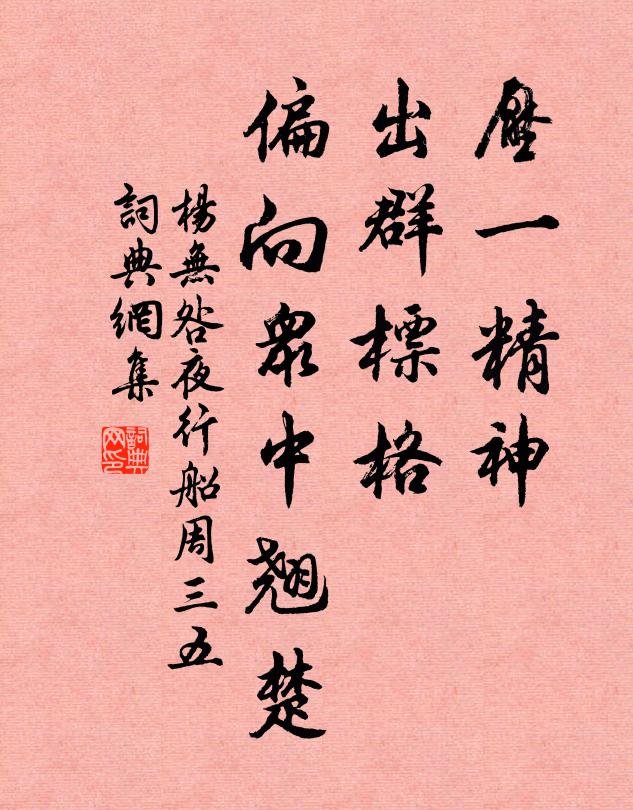 壓一精神
出群標格
偏向眾中翹楚
楊無咎夜行船周三五
詞典網集
詞典网印